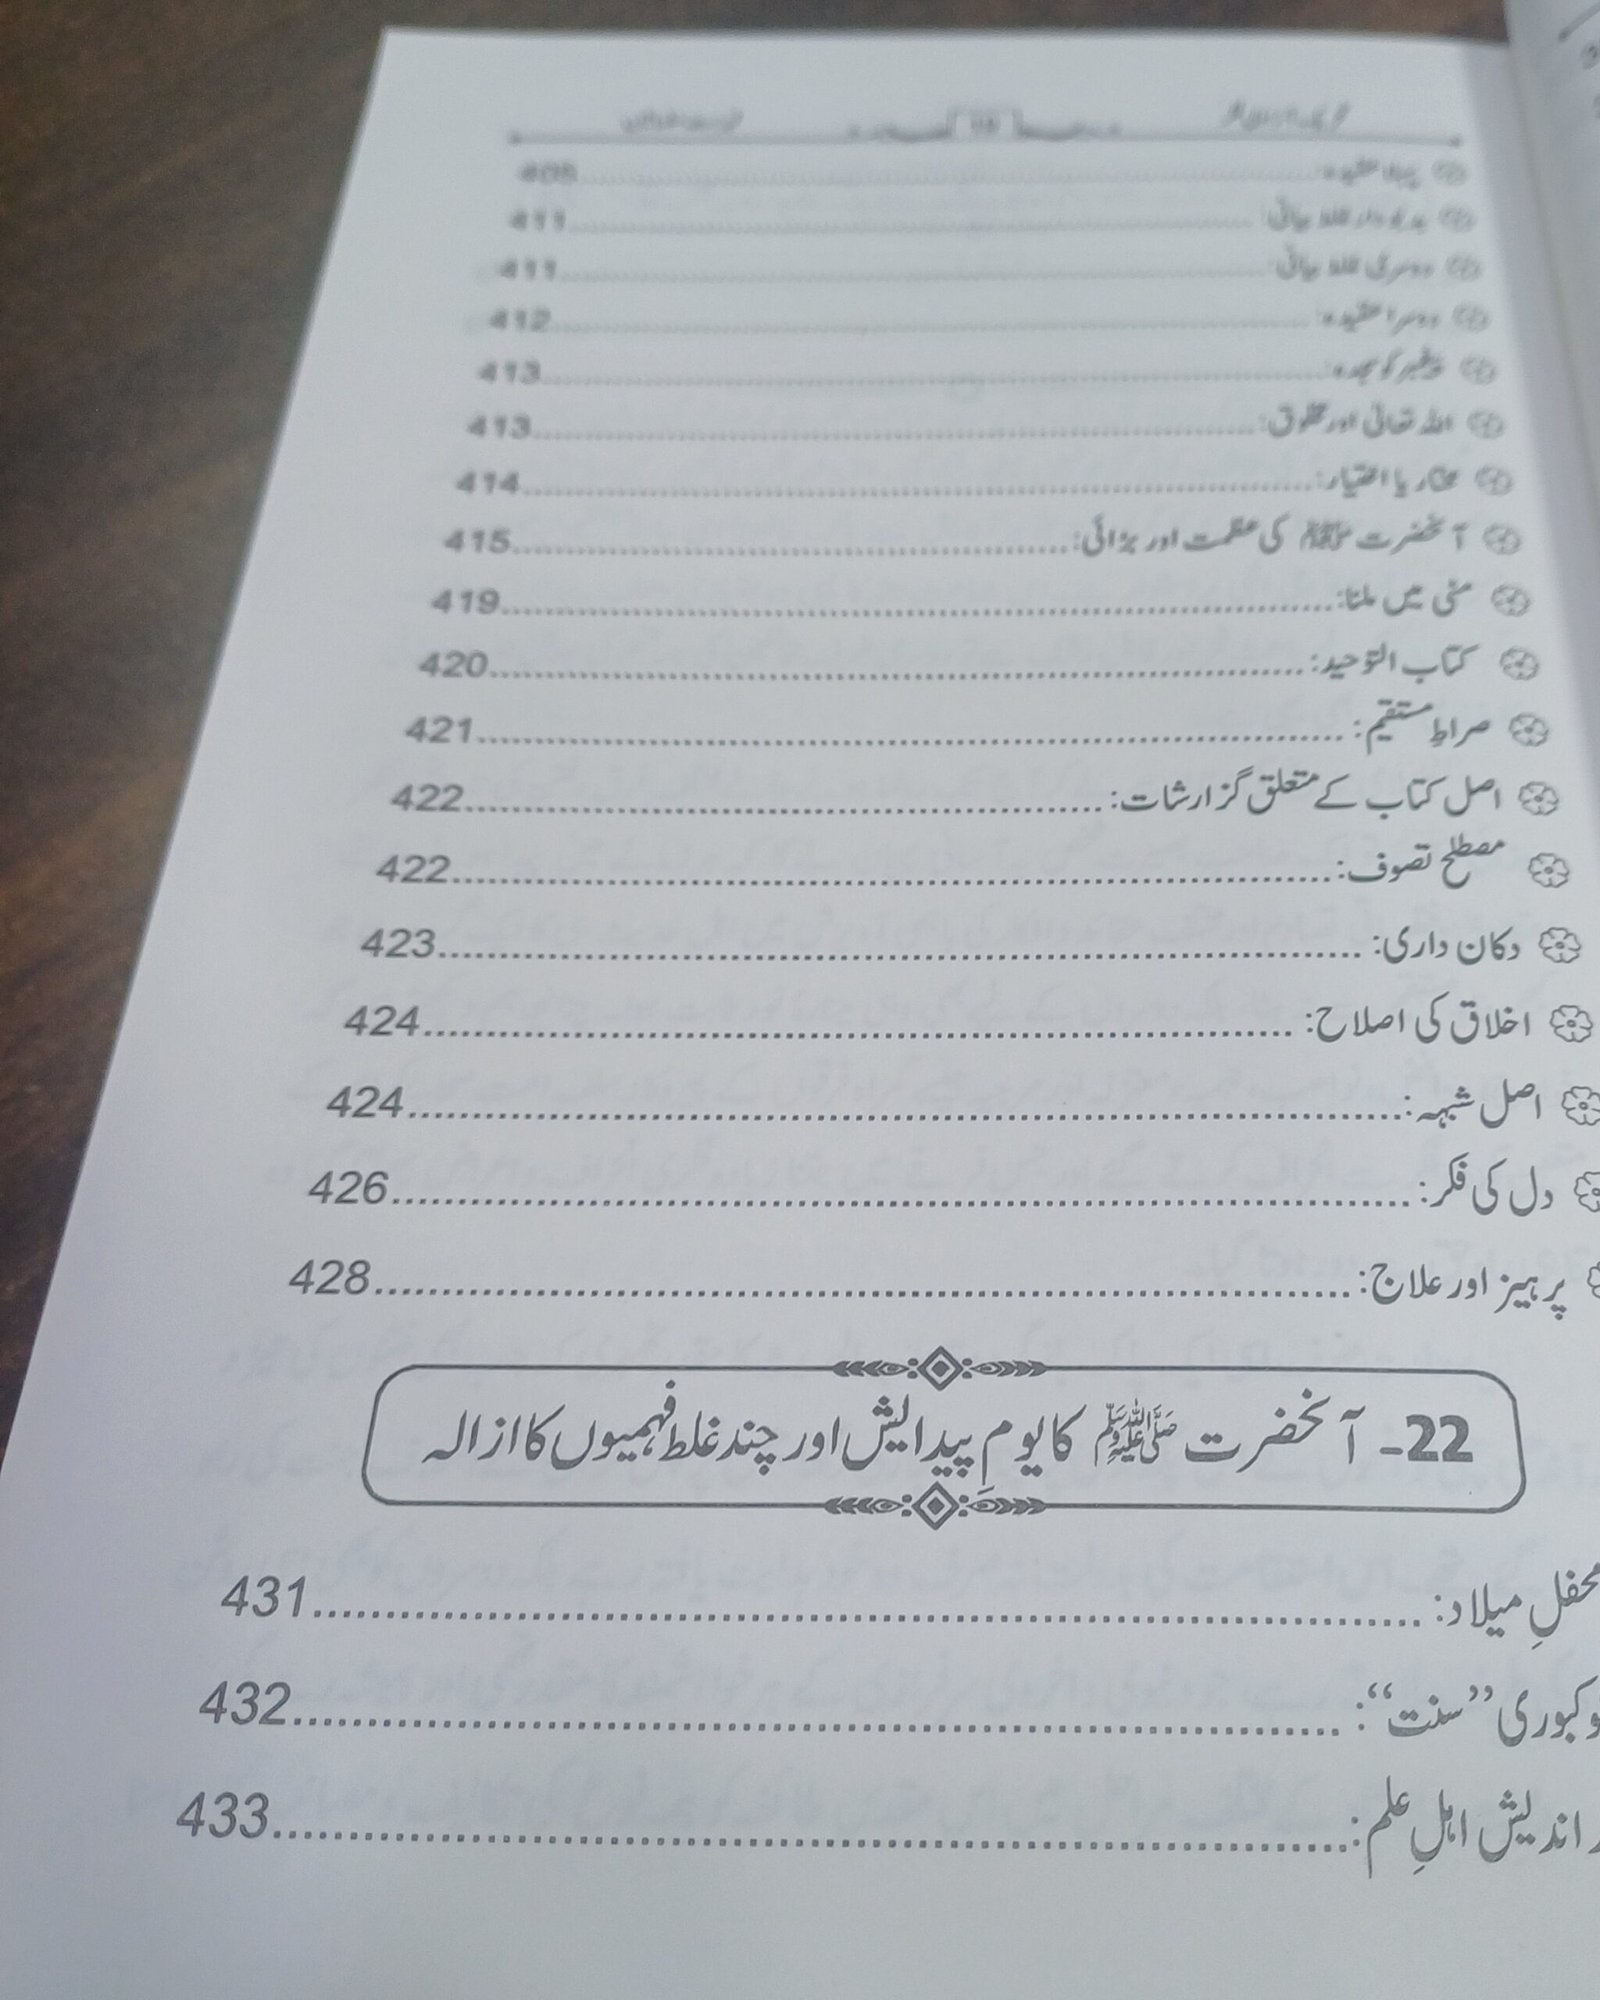 پہلا عقیدہ:
بدبودار غلط بیانی: 411
دوسری غلط بیانی: 411
دوسرا عقیدہ: 412
پیغمبر کو سجدہ: 413
اللہ تعالیٰ اور مخلوق: 413
مختار یا اختیار: 414
آنحضرت ﷺ کی عظمت اور بڑائی: 415
مٹی میں ملنا: 419
کتاب التوحید: 420
صراطِ مستقیم: 421
اصل کتاب کے متعلق گزارشات: 422
مصطلح تصوف: 422
دکان داری: 423
اخلاق کی اصلاح: 424
اصل شبہہ: 424
دل کی فکر: 426
پرہیز اور علاج: 428
22- آنحضرت ﷺ کا یومِ پیدایش اور چند غلط فہمیوں کا ازالہ
محفلِ میلاد: 431
”سنت“: 432
اندیش اہلِ علم: 433